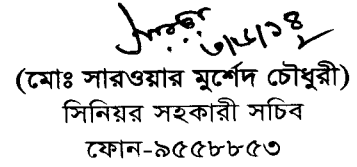 ৩/৮/১৪
(মোঃ সারওয়ার মুর্শেদ চৌধুরী)
সিনিয়র সহকারী সচিব
ফোন-৯৫৫৮৮৫৩